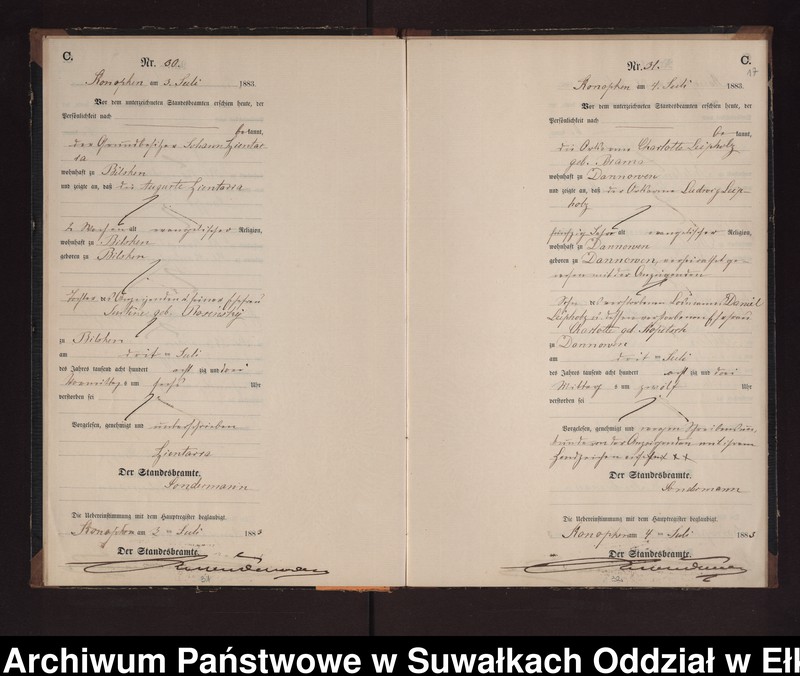 C.
Nr. 30.
Konopken am 3. Juli 1883.
Vor dem unterzeichneten Standesbeamten erschien heute, der
Persönlichkeit nach
bekannt,
der Grundbesitzer Johann Zientar
ra
wohnhaft zu Bilsken
und zeigte an, daß die Auguste Zientarra
2 Wochen alt evangelischer Religion,
wohnhaft zu Bilsken
geboren zu Bilsken
Tochter des Anzeigenden u seiner Ehefrau
geb.
zu Bilsken
am dritten Juli
des Jahres tausend acht hundert acht zig und drei
Vormittags um sechs Uhr
verstorben sei
Vorgelesen, genehmigt und unterschrieben
Zientarra
Der Standesbeamte.
Die Uebereinstimmung mit dem Hauptregister beglaubigt.
Konopken am 3 ten Juli 1883
Der Standesbeamte.
C.
Nr. 31.
Konopken am 4. Juli 1883.
Vor dem unterzeichneten Standesbeamten erschien heute, der
Persönlichkeit nach
bekannt,
die Charlotte Leipholz
geb.
wohnhaft zu Dannowen
und zeigte an, daß der Ludwig Leip-
holz
fünfzig Jahre alt evangelischer Religion,
wohnhaft zu Dannowen
geboren zu Dannowen, verheirathet ge-
wesen mit der Anzeigenden
Sohn des verstorbenen Daniel
Leipholz u dessen verstorbenen Ehefrau
Charlotte geb.
zu Dannowen
am dritten Juli
des Jahres tausend acht hundert acht zig und drei
Mittags um zwölf Uhr
verstorben sei
Vorgelesen, genehmigt und wegen Schreibensun-
kunde von der Anzeigenden mit ihrem
Handzeichen versehen x x x
Der Standesbeamte.
Die Uebereinstimmung mit dem Hauptregister beglaubigt.
Konopken am 4 ten Juli 1883
Der Standesbeamte.
Archiwum Państwowe w Suwałkach Oddział w Ełk